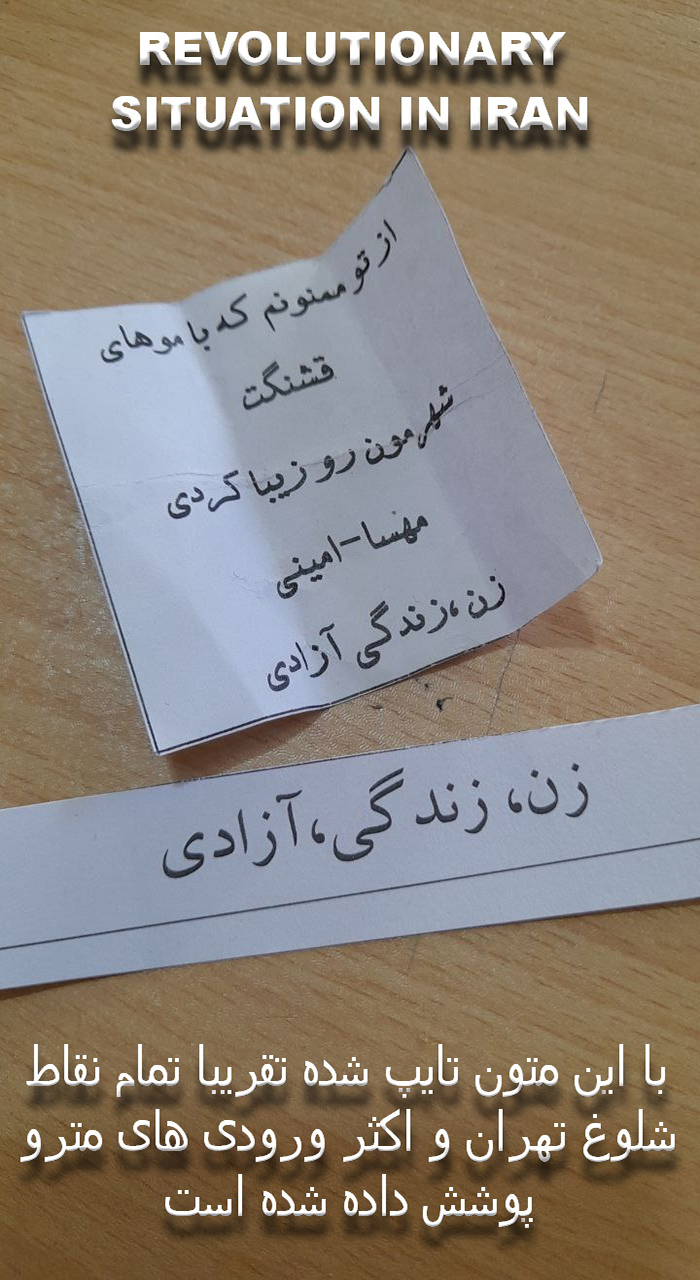 REVOLUTIONARY
SITUATION IN IRAN
از تو ممنونم که با موهای
قشنگت
شهرمون رو زیبا کردی
مهسا-امینی
زن،زندگی آزادی
زن، زندگی،آزادی
با این متون تایپ شده تقریبا تمام نقاط
شلوغ تهران و اکثر ورودی های مترو
پوشش داده شده است